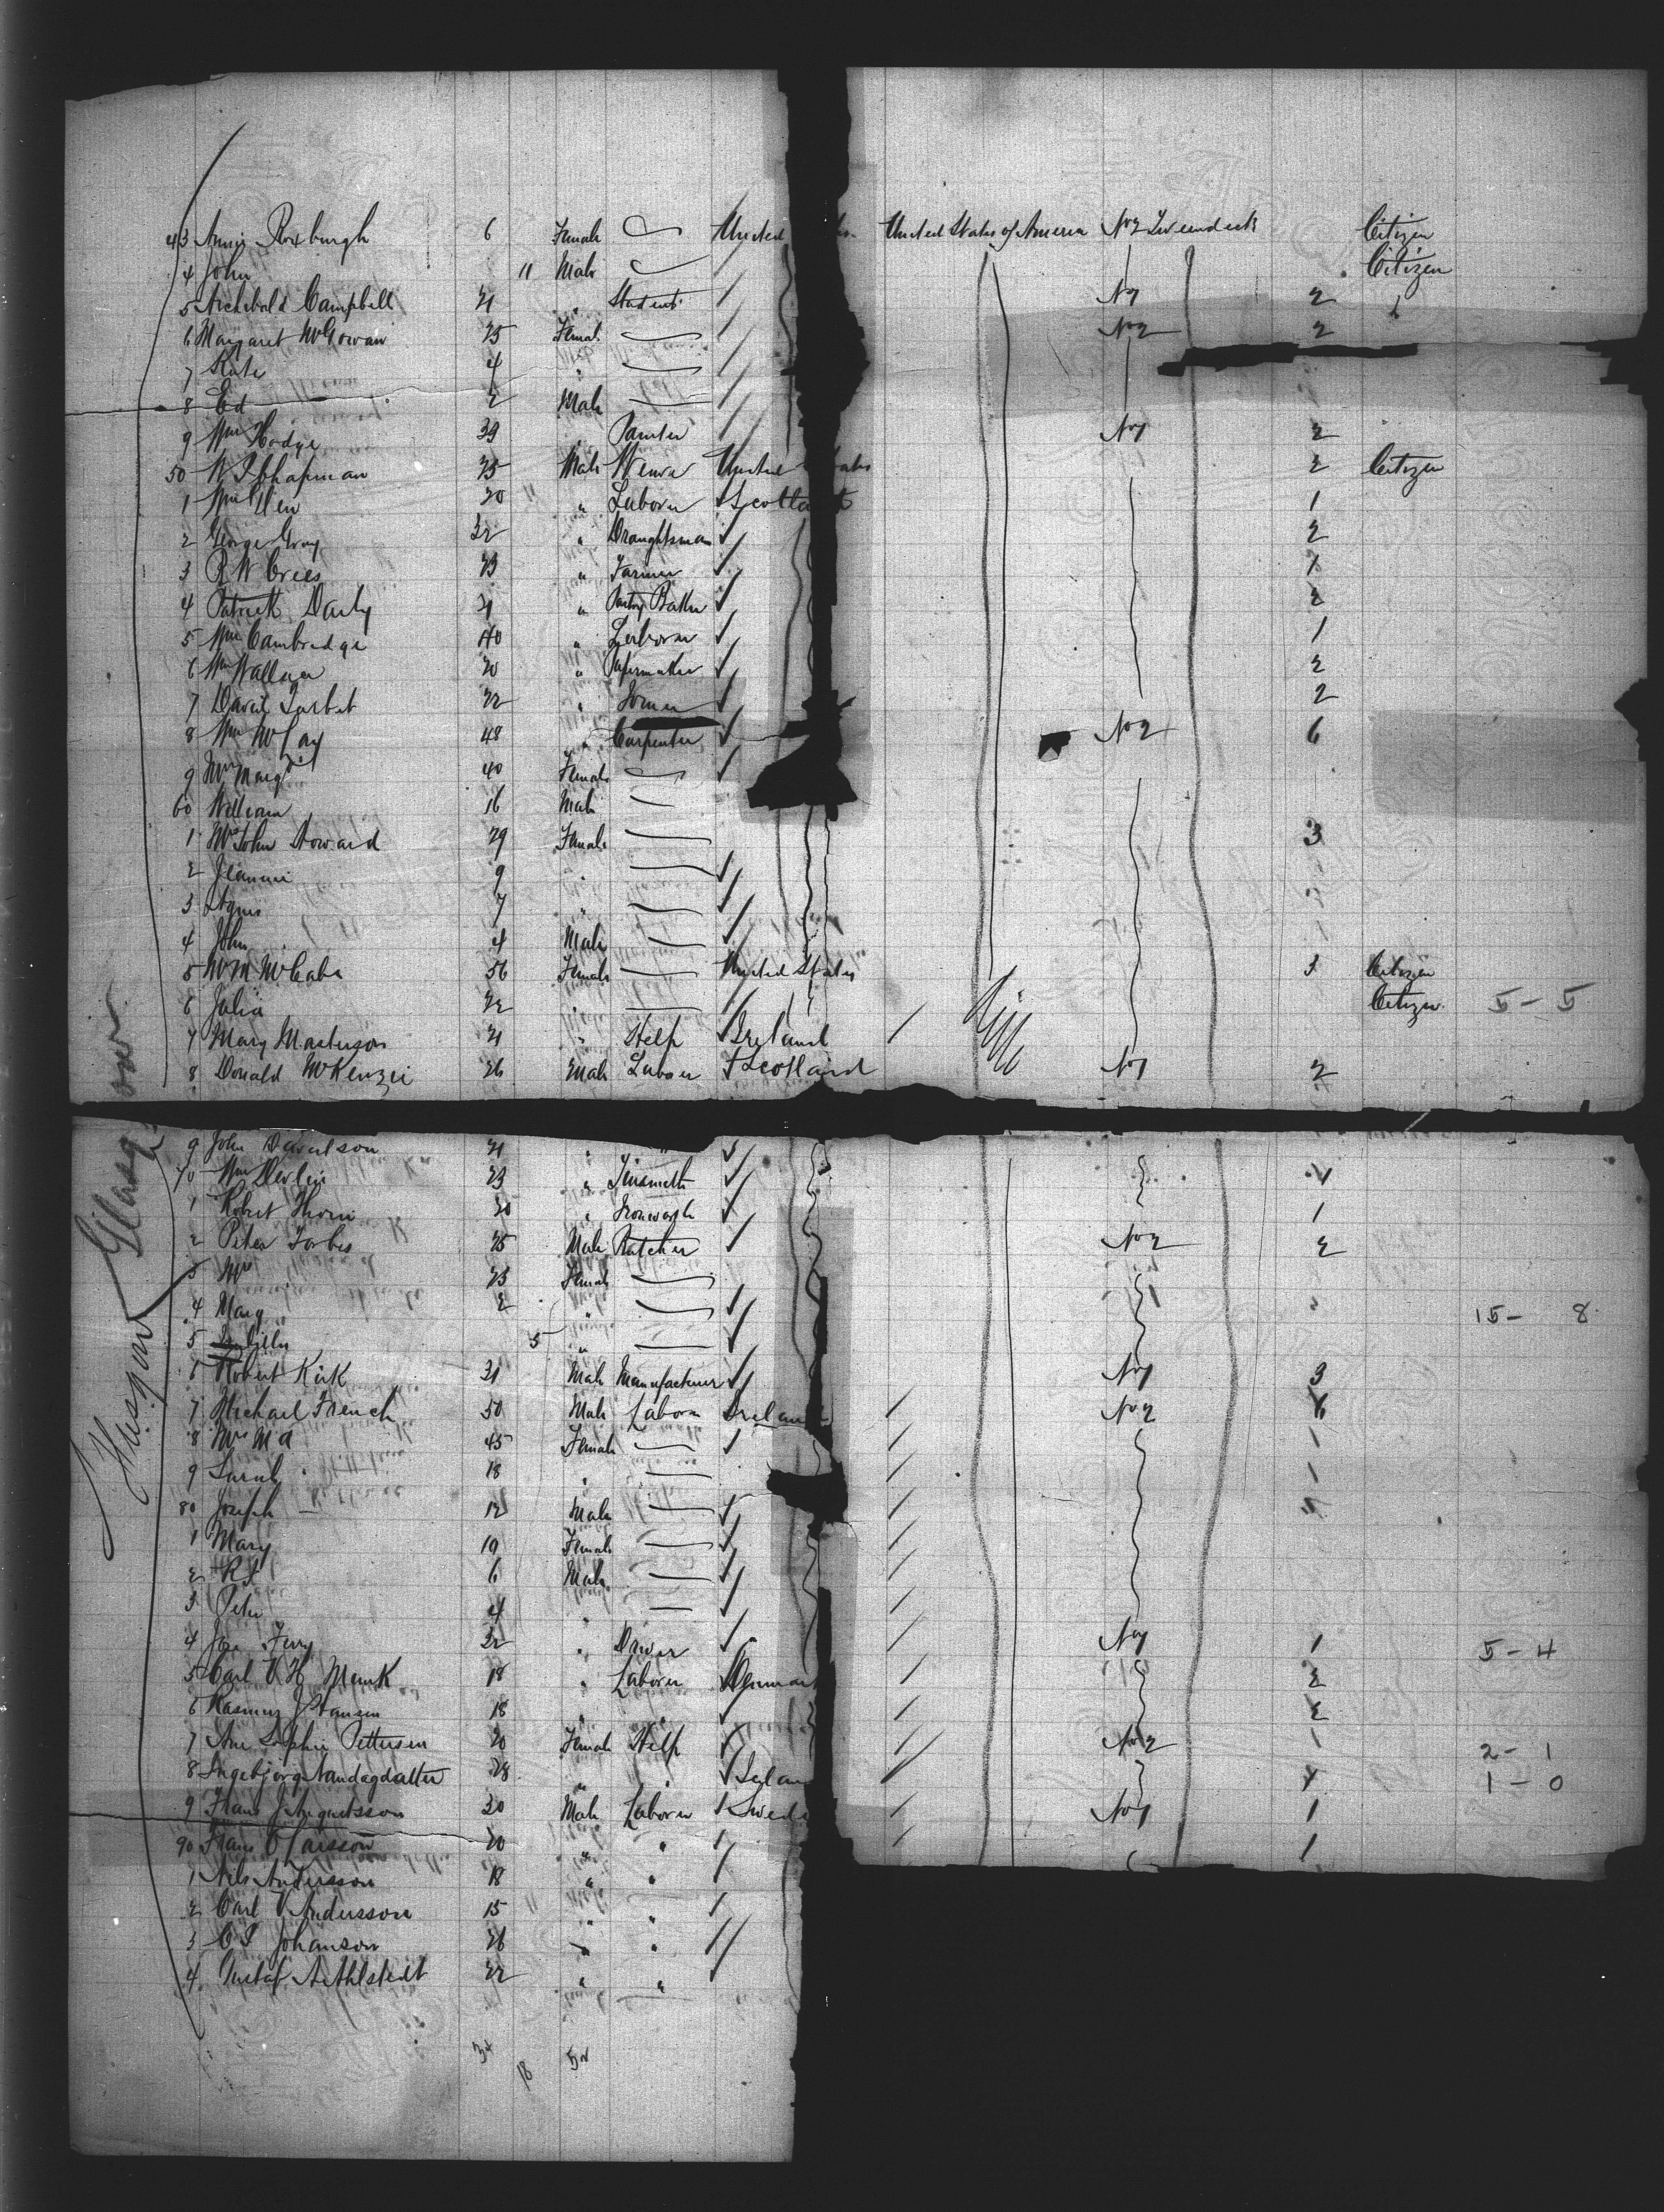 43 Annie Roxburgh 6 Female United States United States of America No 2 Tweendeck Citizen
4 John 11 Male Citizen
5 Archibald Campbell 21 " Student No 1 2
6 Margaret McGowan 25 Female No 2 2
7 Kate 4 "
8 Ed 2 Male
9 Wm Hodge 39 " Painter No 1 2
50 W J Chapman 25 Male United States 2 Citizen
1 Wm 20 " Laborer Scotland 1
2 George Gray 32 " Draughtsman 2
3 R W Crees 23 " Farmer 1
4 Patrick Darly 21 " Pastry Baker 2
5 Wm Cambredge 40 " Laborer 1
6 Wm Wallace 20 " Papermaker 2
7 David Tarbet 22 " Joiner 2
8 Wm McCay 48 " Carpenter No 2 6
9 Mrs Margt 40 Female
60 William 16 Male
1 Mrs John Howard 29 Female 3
2 Jeannie 9 "
3 Agnes 7 "
4 John 4 Male
5 McCabe 56 Female United States 3 Citizen
6 Julia 22 " Citizen 5 - 5
7 Mary Masterson 21 " Help Ireland
8 Donald McKenzie 26 Male Laborer Scotland No 1 2
Glasgow
9 John Davidson 21 " "
70 Wm Devlin 23 " Tinsmith 1
1 Robert Thom 30 " 1
2 Peter Forbes 25 Male Butcher No 2 2
3 Mrs 23 Female
4 Mary 2 " 15 - 8
5 5 "
6 Robert Kirk 31 Male Manufacturer No 1 3
Glasgow
7 Michael French 50 Male Laborer Ireland No 2 6
8 Mrs M A 45 Female
9 Sarah 18 "
80 Joseph 12 Male
1 Mary 10 Female
2 R J 6 Male
3 Peter 4 "
4 Jas Terry 32 " Drover No 1 1 5 - 4
5 Carl V H Munk 18 " Laborer Denmark 2
6 Rasmus J Hansen 18 " " 2
7 Ane Sophie Pettersen 20 Female Help No 2 1 2 - 1
8 28 " " 1 1 - 0
9 Frans J Augustsson 30 Male Laborer Sweden No 1 1
90 Frans O Larsson 20 " " 1
1 Nils Andersson 18 " "
2 Carl V Andersson 15 " "
3 C J Johanson 26 " "
4 Gustaf 22 " "
34 18 52